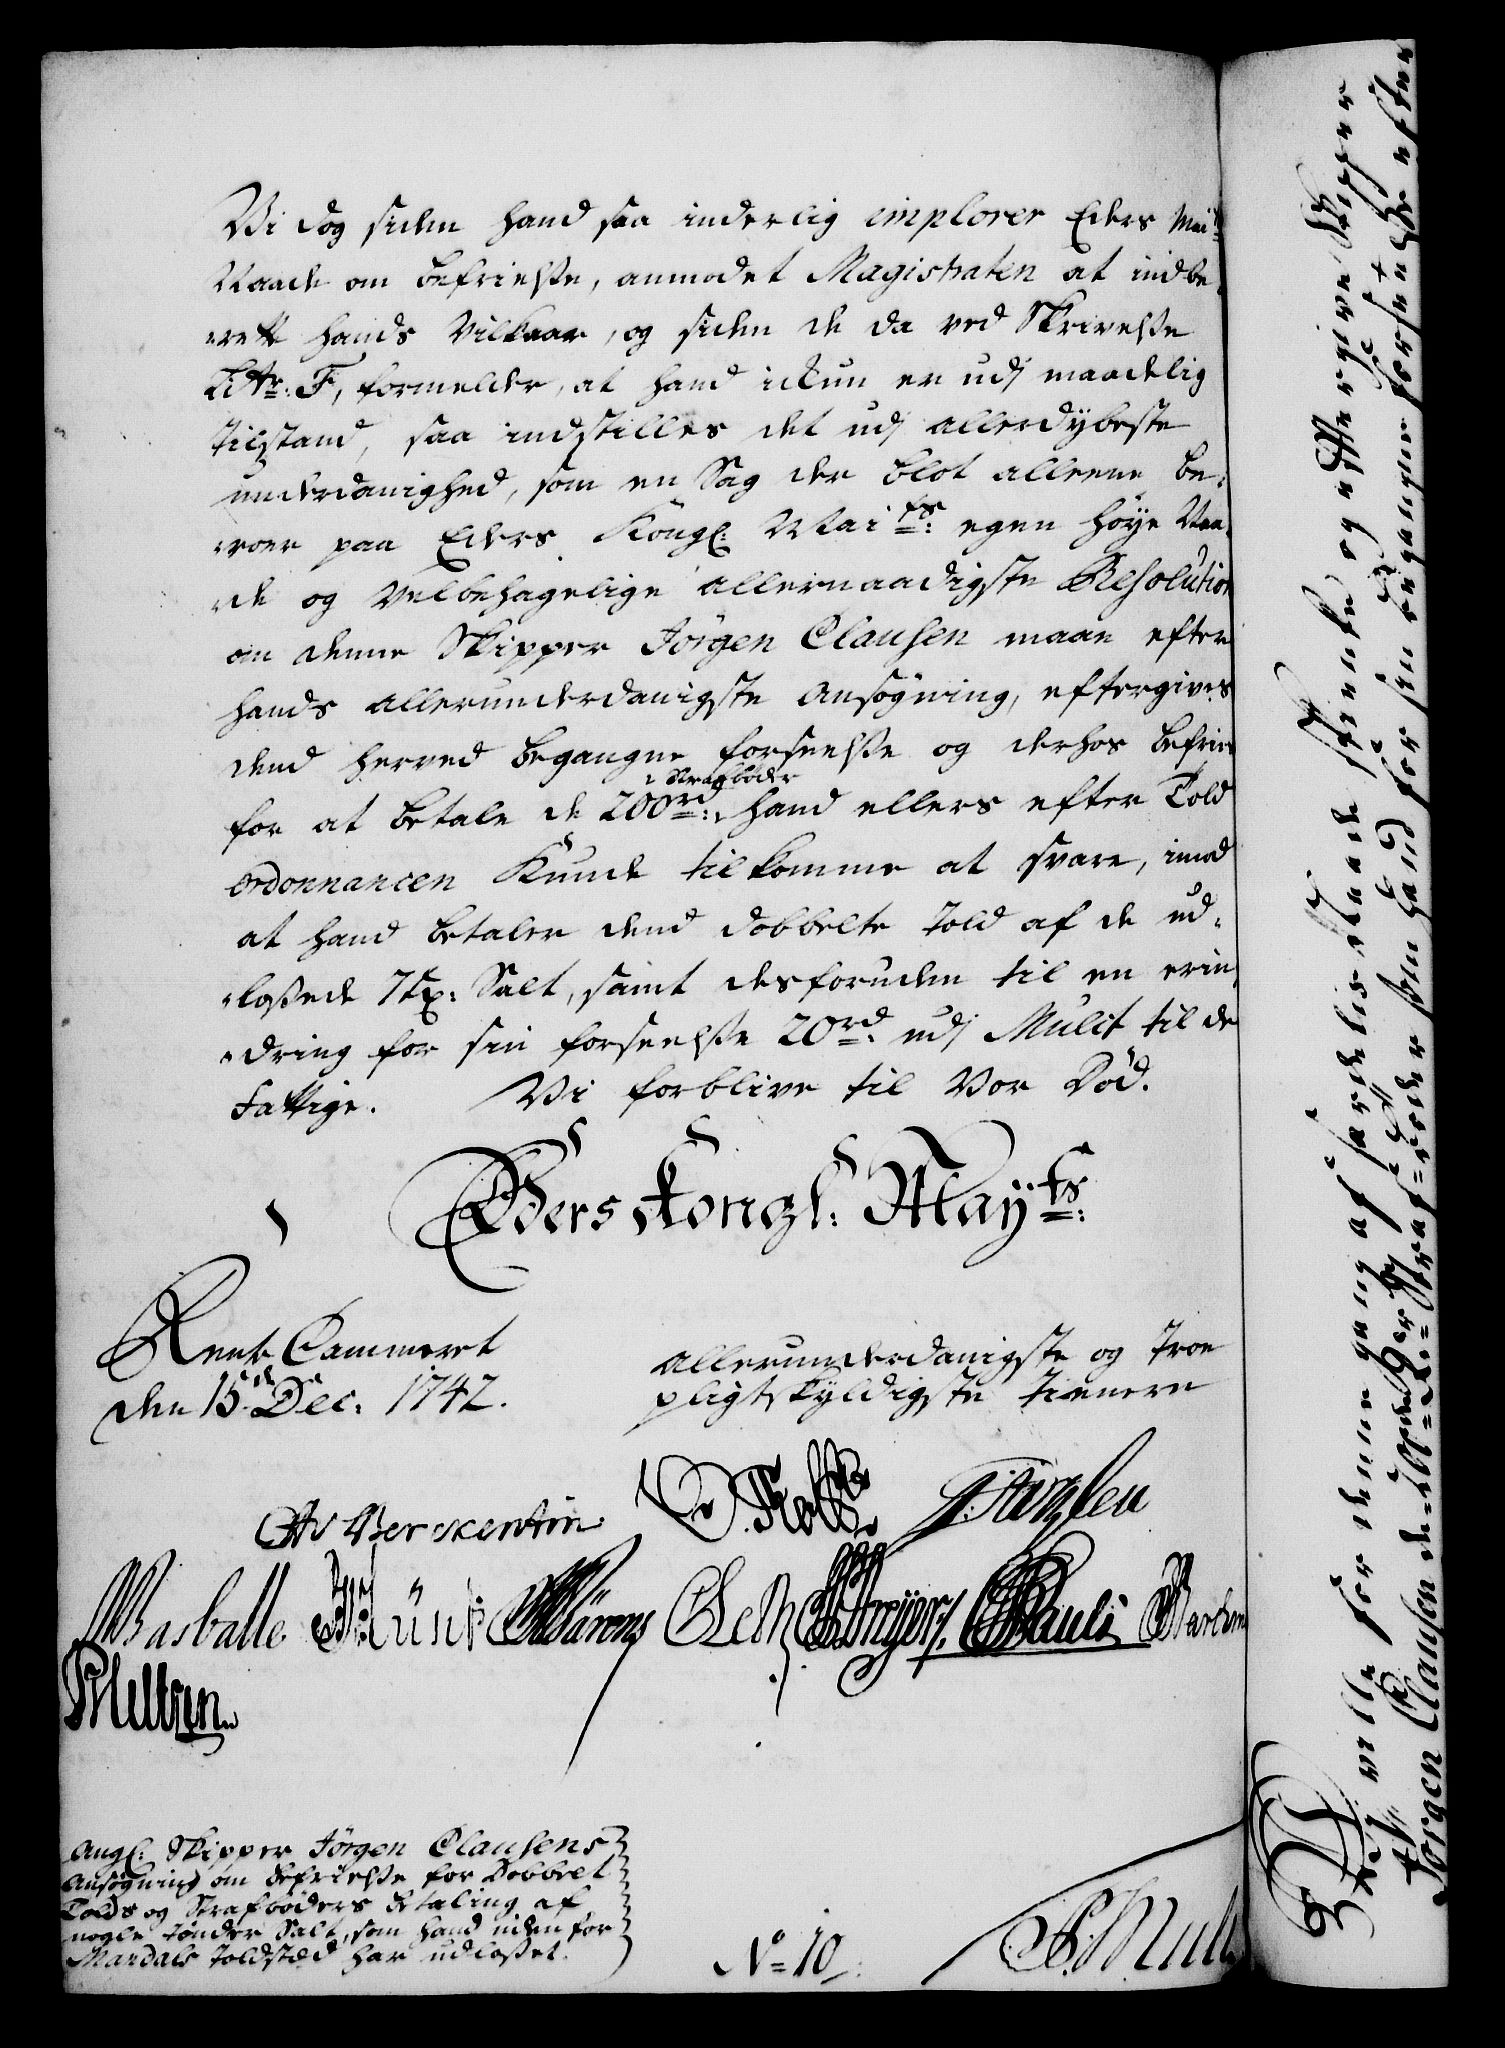 Vi dog siden hand saa inderlig implorer Eders Mai
Naade om befrielsse, anmodet Magistraten at indbe,
,,rette hands Vilkaar, og siden de da ved Skrivelsse
Littr: F, formelder, at hand ickun er udj maadelig
tilstand, saa indstilles det udj allerdybeste
underdanighed, som en Sag der blot alleene be,
,,roer paa Eders Kongl: Maits: egen høye Naa,
,,de og velbehagelige allernaadigste Resolution
om denne Skipper Jørgen Clausen maae efter
hands allerunderdanigste Ansøgning, eftergives
dend herved begangne forseelsse og derhos befries
Strafbøder
for at betale de 200 rd: hand ellers efter Told
ordonnancen Kunde tilkomme at svare, imod
at hand betaler dend dobbelte Told af de ud,
,,lossede 7 tr: Salt, samt desforuden til en erin
,,dring for sin forseelsse 20 rd: udj Mulct til de
Fattige. Vi forblive til Vor Død.
Eders Kongl: Mayts:
Rente Cammeret
den 15de Dec: 1742.
allerunderdanigste og troe
pligtskyldigste tienere
Berckentin
Basballe
Pauli
Angl: Skipper Jørgen Clausens
Ansøgning om befrielsse for Dobbelt
Tolds og Strafbøders betaling af
nogle tønder Salt, som hand uden for
Mandals toldsted har udlosset.
No 10
Vi ville for denne gang af særdelis Naade skienke og eftergive Skipper
Jørgen Clausen de Straf-bøder som hand for sin begangne forseelse efter